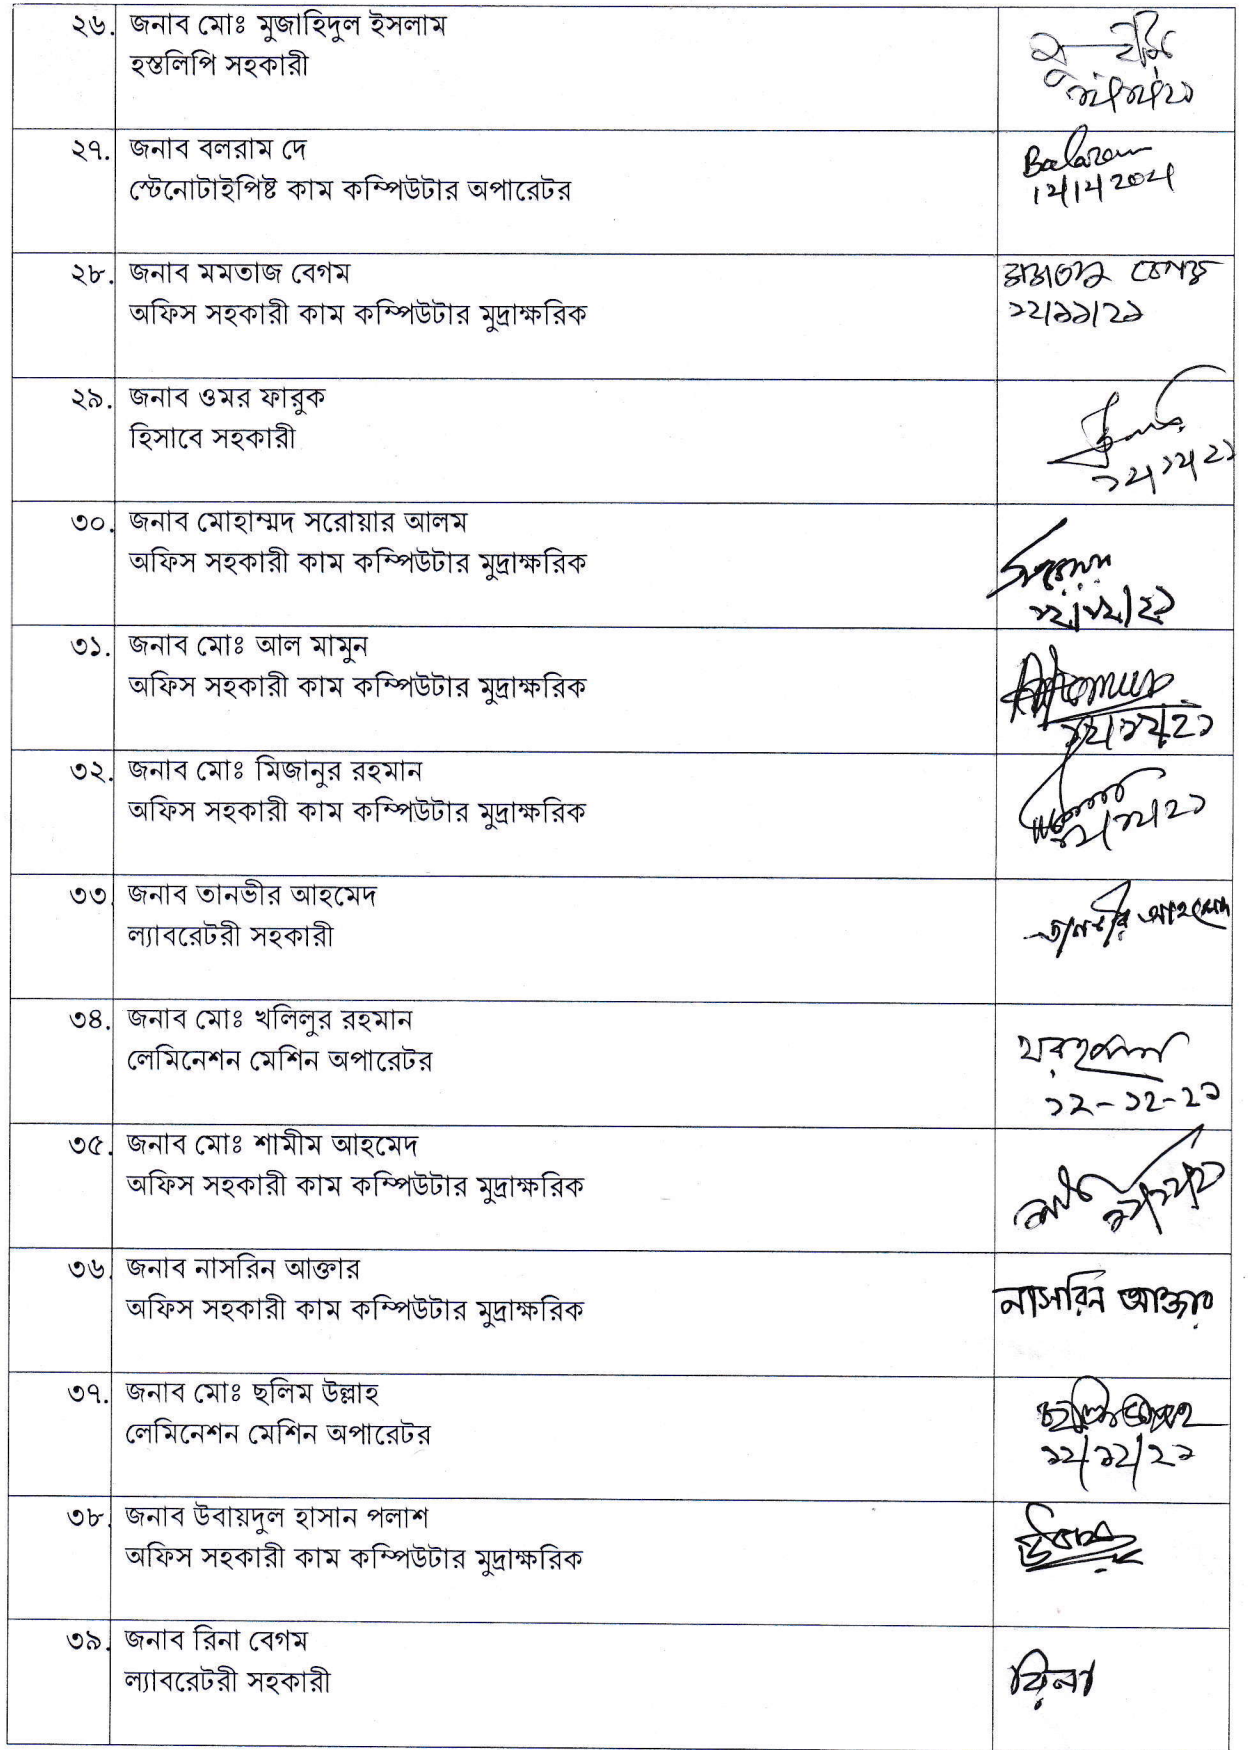 ২৬. জনাব মোঃ মুজাহিদুল ইসলাম
হস্তলিপি সহকারী
২৭. জনাব বলরাম দে
স্টেনোটাইপিষ্ট কাম কম্পিউটার অপারেটর
Balaram
12/12/2021
২৮. জনাব মমতাজ বেগম
অফিস সহকারী কাম কম্পিউটার মুদ্রাক্ষরিক
মমতাজ বেগম
১২/১১/২১
২৯. জনাব ওমর ফারুক
হিসাবে সহকারী
১২/১২/২১
৩০. জনাব মোহাম্মদ সরোয়ার আলম
অফিস সহকারী কাম কম্পিউটার মুদ্রাক্ষরিক
১২/১২/২১
৩১. জনাব মোঃ আল মামুন
অফিস সহকারী কাম কম্পিউটার মুদ্রাক্ষরিক
১২/১২/২১
৩২. জনাব মোঃ মিজানুর রহমান
অফিস সহকারী কাম কম্পিউটার মুদ্রাক্ষরিক
১২/১২/২১
৩৩. জনাব তানভীর আহমেদ
ল্যাবরেটরী সহকারী
তানভীর আহমেদ
৩৪. জনাব মোঃ খলিলুর রহমান
লেমিনেশন মেশিন অপারেটর
১২-১২-২১
৩৫. জনাব মোঃ শামীম আহমেদ
অফিস সহকারী কাম কম্পিউটার মুদ্রাক্ষরিক
৩৬. জনাব নাসরিন আক্তার
অফিস সহকারী কাম কম্পিউটার মুদ্রাক্ষরিক
নাসরিন আক্তার
৩৭. জনাব মোঃ ছলিম উল্লাহ
লেমিনেশন মেশিন অপারেটর
১২/১২/২১
৩৮. জনাব উবায়দুল হাসান পলাশ
অফিস সহকারী কাম কম্পিউটার মুদ্রাক্ষরিক
৩৯. জনাব রিনা বেগম
ল্যাবরেটরী সহকারী
রিনা